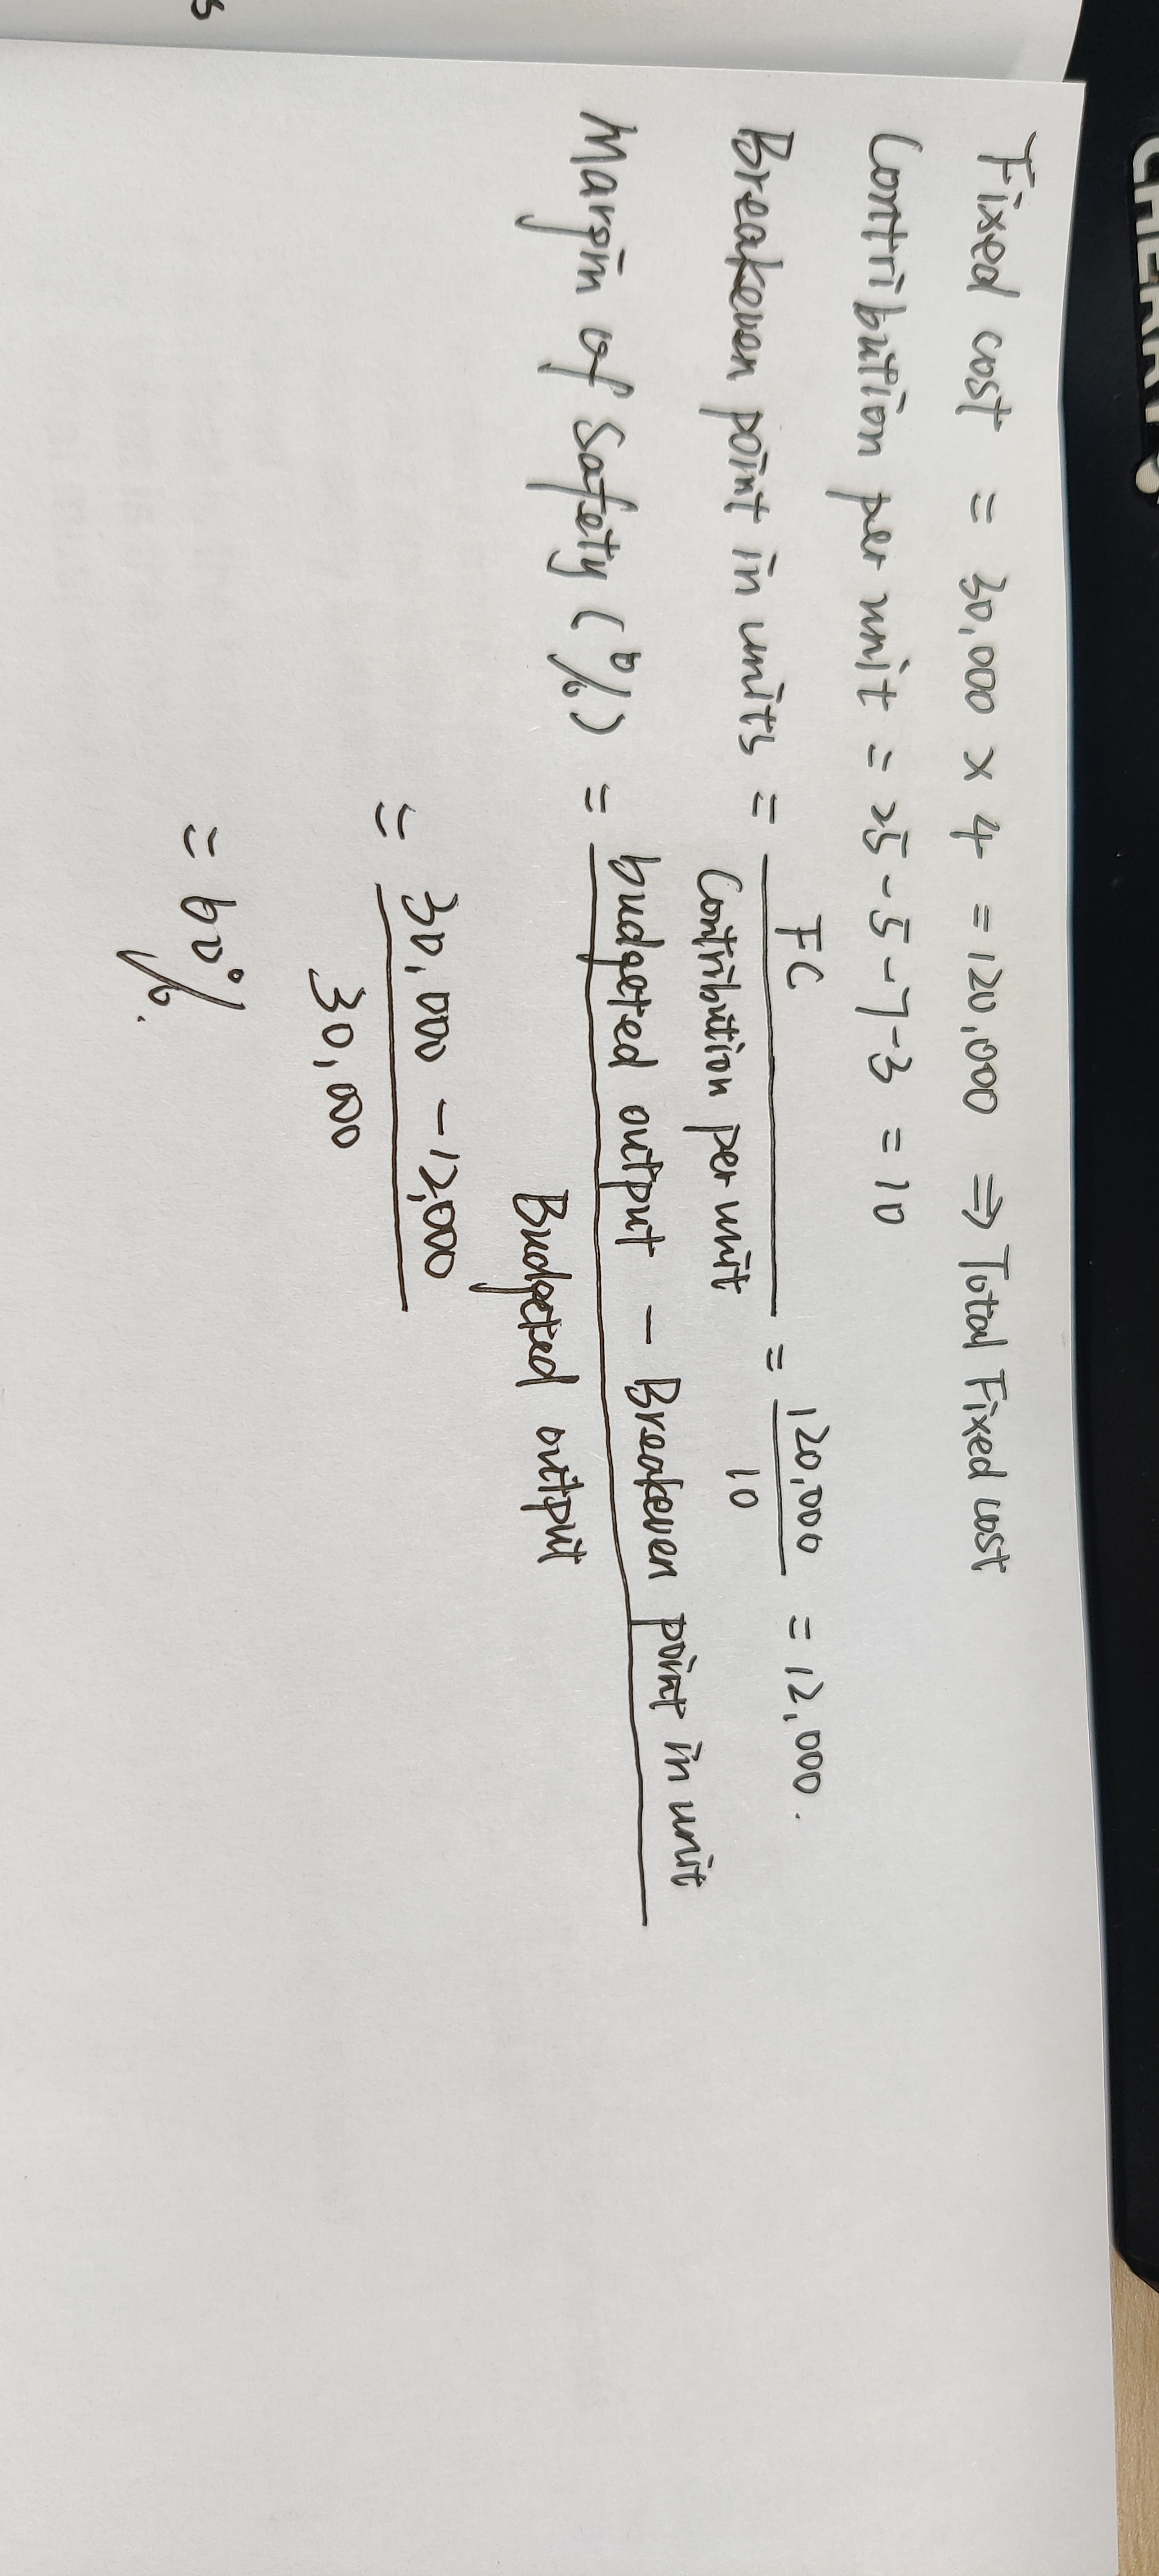 Fixed cost = 30,000 x 4 = 120,000 ⇒ Total Fixed cost
Contribution per unit = 25 - 5 - 7 - 3 = 10
Breakeven point in units = FC / Contribution per unit = 120,000 / 10 = 12,000.
Margin of Safety (%) = budgeted output - Breakeven point in unit / Budgeted output
= 30,000 - 12,000 / 30,000
= 60%.